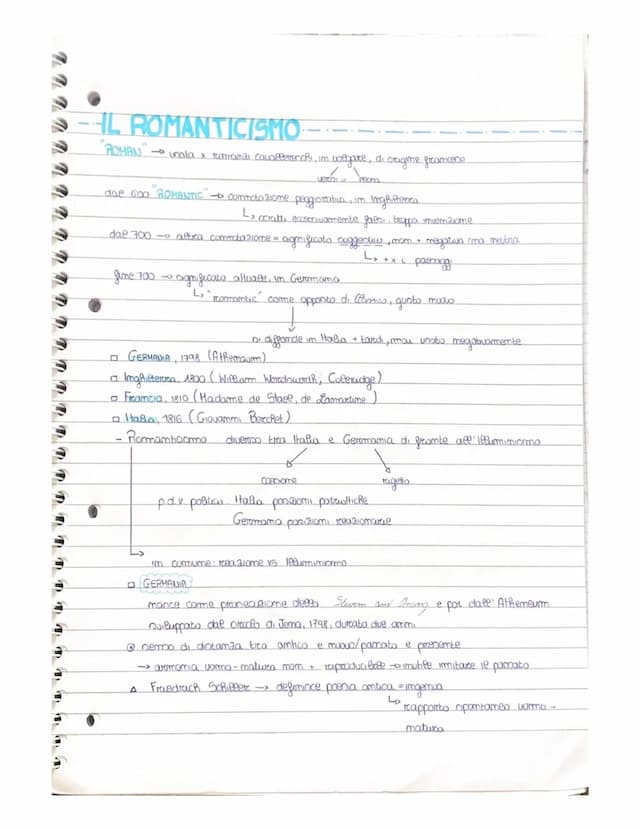 IL ROMANTICISMO
"ROMAN" → usata x romanzi cavallereschi, in volgare, di origine francese
versi - prosa
dal 600 "ROMANTIC" → connotazione peggiorativa, in Inghilterra
↳ scritti eccessivamente falsi, troppa invenzione
dal 700 → altra connotazione = significato suggestivo, non + negativa ma neutra
↳ ++ x i paesaggi
fine 700 → significato attuale, in Germania
↳ "romantic" come opposto di Classico, gusto nuovo
si diffonde in Italia + tardi, ma usato negativamente
□ GERMANIA, 1798 (Athenaum)
□ Inghilterra, 1800 (William Wordsworth, Coleridge)
□ Francia, 1810 (Madame de Stael, de Lamartine)
□ Italia, 1816 (Giovanni Berchet)
- Romanticismo diverso tra Italia e Germania di fronte all'Illuminismo
coesione rigetto
p.d.v. politico: Italia posizioni patriottiche
Germania posizioni reazionarie
in comune: reazione vs Illuminismo
□ GERMANIA
nasce come prosecuzione dello Sturm und Drang e poi dall'Athenaum
sviluppato dal circolo di Jena, 1798, durato due anni
senso di distanza tra antico e nuovo/passato e presente
→ armonia uomo-natura non + riproducibile → inutile imitare il passato
△ Friedrich Schiller → definisce poesia antica = ingenua
↳ rapporto spontaneo uomo-
natura